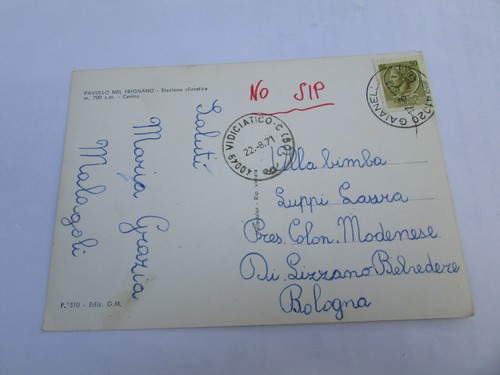 PAVULLO NEL FRIGNANO - Stazione climatica
m. 700 s.m. - Centro
NO SIP
41020 GAIANELL
40049 VIDICIATICO-C (BO)
22-8.71
Saluti
Maria Grazia
Malagoli
Alla bimba
Luppi Laura
Pres. Colon. Modenese
Di Lizzano Belvedere
Bologna
P. 510 - Ediz. G.M.